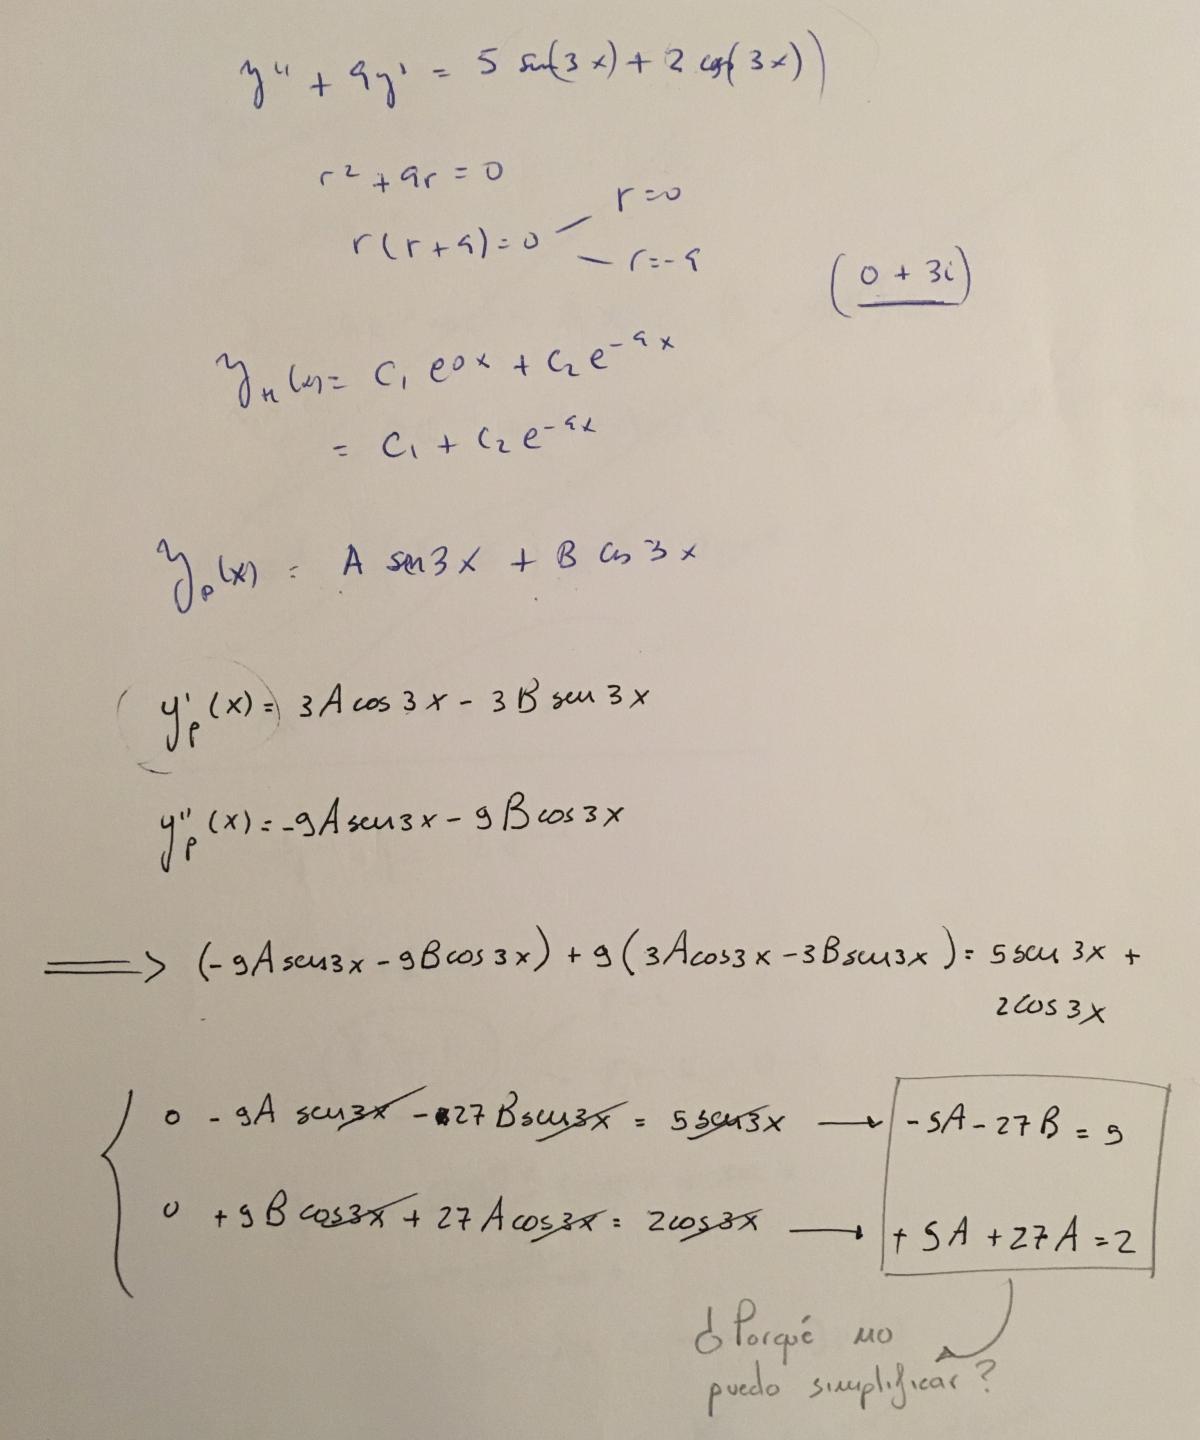 y'' + 9y' = 5 sen(3x) + 2 cos(3x))
r² + 9r = 0
r(r+9) = 0
r=0
r=-9
(0 + 3i)
y_H(x) = C₁ e^{0x} + C₂ e^{-9x}
= C₁ + C₂ e^{-9x}
y_p(x) = A sen 3x + B cos 3x
y'_p(x) = 3A cos 3x - 3B sen 3x
y''_p(x) = -9A sen 3x - 9B cos 3x
⟹ (-9A sen 3x - 9B cos 3x) + 9(3A cos 3x - 3B sen 3x) = 5 sen 3x +
2 cos 3x
o - 9A sen 3x - 27 B sen 3x = 5 sen 3x → -9A - 27B = 9
o + 9B cos 3x + 27 A cos 3x = 2 cos 3x → + 9A + 27A = 2
¿Porqué no
puedo simplificar?